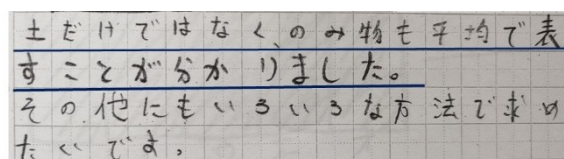 土だけではなく、のみ物も平均で表
すことが分かりました。
その他にもいろいろな方法で求め
たいです。